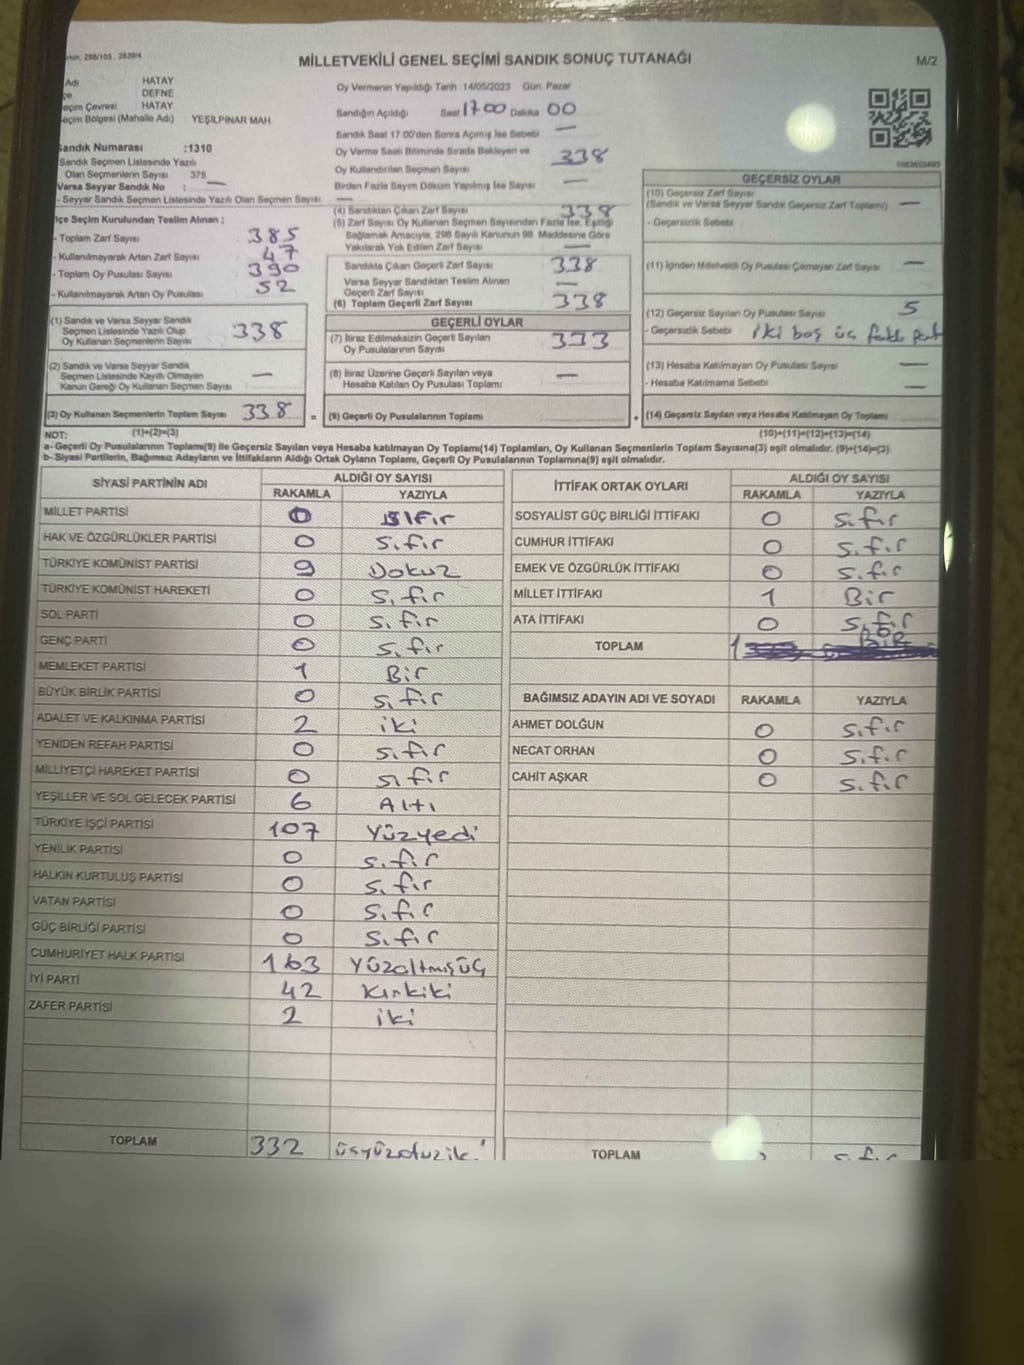 MİLLETVEKİLİ GENEL SEÇİMİ SANDIK SONUÇ TUTANAĞI
M/2
Adı HATAY
DEFNE
Seçim Çevresi HATAY
Seçim Bölgesi (Mahalle Adı) YEŞİLPINAR MAH.
Sandık Numarası :1310
Sandık Seçmen Listesinde Yazılı
Olan Seçmenlerin Sayısı : 375
Varsa Seyyar Sandık No : —
- Seyyar Sandık Seçmen Listesinde Yazılı Olan Seçmen Sayısı —
İlçe Seçim Kurulundan Teslim Alınan :
- Toplam Zarf Sayısı 385
- Kullanılmayarak Artan Zarf Sayısı 47
- Toplam Oy Pusulası Sayısı 390
- Kullanılmayarak Artan Oy Pusulası 52
(1) Sandık ve Varsa Seyyar Sandık
Seçmen Listesinde Yazılı Olup
Oy Kullanan Seçmenlerin Sayısı 338
(2) Sandık ve Varsa Seyyar Sandık
Seçmen Listesinde Kayıtlı Olmayan
Kanun Gereği Oy Kullanan Seçmen Sayısı —
(3) Oy Kullanan Seçmenlerin Toplam Sayısı 338
(1)+(2)=(3)
Oy Vermenin Yapıldığı Tarih 14/05/2023 Gün: Pazar
Sandığın Açıldığı Saat 17 00 Dakika 00
Sandık Saat 17.00'den Sonra Açılmış İse Sebebi —
Oy Verme Saati Bitiminde Sırada Bekleyen ve
Oy Kullandırılan Seçmen Sayısı 338
Birden Fazla Sayım Döküm Yapılmış İse Sayısı —
(4) Sandıktan Çıkan Zarf Sayısı 338
(5) Zarf Sayısı Oy Kullanan Seçmen Sayısından Fazla İse, Eşitliği
Sağlamak Amacıyla, 298 Sayılı Kanunun 98. Maddesine Göre
Yakılarak Yok Edilen Zarf Sayısı —
Sandıkta Çıkan Geçerli Zarf Sayısı 338
Varsa Seyyar Sandıktan Teslim Alınan
Geçerli Zarf Sayısı —
(6) Toplam Geçerli Zarf Sayısı 338
GEÇERLİ OYLAR
(7) İtiraz Edilmeksizin Geçerli Sayılan
Oy Pusulalarının Sayısı 333
(8) İtiraz Üzerine Geçerli Sayılan veya
Hesaba Katılan Oy Pusulası Toplamı —
= (9) Geçerli Oy Pusulalarının Toplamı
GEÇERSİZ OYLAR
(10) Geçersiz Zarf Sayısı
(Sandık ve Varsa Seyyar Sandık Geçersiz Zarf Toplamı) —
- Geçersizlik Sebebi
(11) İçinden Milletvekili Oy Pusulası Çıkmayan Zarf Sayısı —
(12) Geçersiz Sayılan Oy Pusulası Sayısı 5
- Geçersizlik Sebebi iki boş üç farklı
(13) Hesaba Katılmayan Oy Pusulası Sayısı —
- Hesaba Katılmama Sebebi —
+ (14) Geçersiz Sayılan veya Hesaba Katılmayan Oy Toplamı
(10)+(11)+(12)+(13)=(14)
NOT:
a- Geçerli Oy Pusulalarının Toplamı(9) ile Geçersiz Sayılan veya Hesaba katılmayan Oy Toplamı(14) Toplamları, Oy Kullanan Seçmenlerin Toplam Sayısına(3) eşit olmalıdır. (9)+(14)=(3)
b- Siyasi Partilerin, Bağımsız Adayların ve İttifakların Aldığı Ortak Oyların Toplamı, Geçerli Oy Pusulalarının Toplamına(9) eşit olmalıdır.
SİYASİ PARTİNİN ADI ALDIĞI OY SAYISI
RAKAMLA YAZIYLA
MİLLET PARTİSİ 0 Sıfır
HAK VE ÖZGÜRLÜKLER PARTİSİ 0 Sıfır
TÜRKİYE KOMÜNİST PARTİSİ 9 Dokuz
TÜRKİYE KOMÜNİST HAREKETİ 0 Sıfır
SOL PARTİ 0 Sıfır
GENÇ PARTİ 0 Sıfır
MEMLEKET PARTİSİ 1 Bir
BÜYÜK BİRLİK PARTİSİ 0 Sıfır
ADALET VE KALKINMA PARTİSİ 2 iki
YENİDEN REFAH PARTİSİ 0 Sıfır
MİLLİYETÇİ HAREKET PARTİSİ 0 Sıfır
YEŞİLLER VE SOL GELECEK PARTİSİ 6 Altı
TÜRKİYE İŞÇİ PARTİSİ 107 Yüzyedi
YENİLİK PARTİSİ 0 Sıfır
HALKIN KURTULUŞ PARTİSİ 0 Sıfır
VATAN PARTİSİ 0 Sıfır
GÜÇ BİRLİĞİ PARTİSİ 0 Sıfır
CUMHURİYET HALK PARTİSİ 163 Yüzaltmışüç
İYİ PARTİ 42 Kırkiki
ZAFER PARTİSİ 2 iki
TOPLAM 332
İTTİFAK ORTAK OYLARI ALDIĞI OY SAYISI
RAKAMLA YAZIYLA
SOSYALİST GÜÇ BİRLİĞİ İTTİFAKI 0 Sıfır
CUMHUR İTTİFAKI 0 Sıfır
EMEK VE ÖZGÜRLÜK İTTİFAKI 0 Sıfır
MİLLET İTTİFAKI 1 Bir
ATA İTTİFAKI 0 Sıfır
TOPLAM 1 BİR
BAĞIMSIZ ADAYIN ADI VE SOYADI RAKAMLA YAZIYLA
AHMET DOLĞUN 0 Sıfır
NECAT ORHAN 0 Sıfır
CAHİT AŞKAR 0 Sıfır
TOPLAM